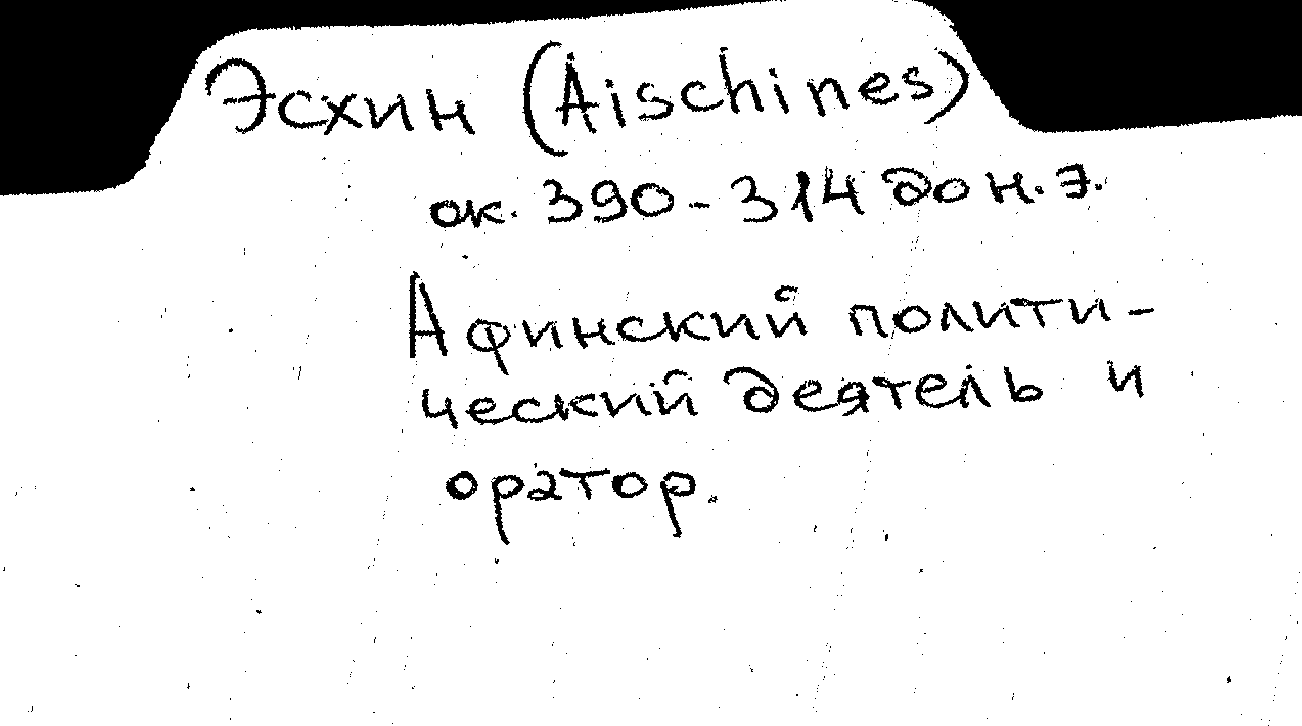 Эсхин (Aischines)
ок. 390-314 до н.э.
Афинский полити-
ческий деятель и
оратор.